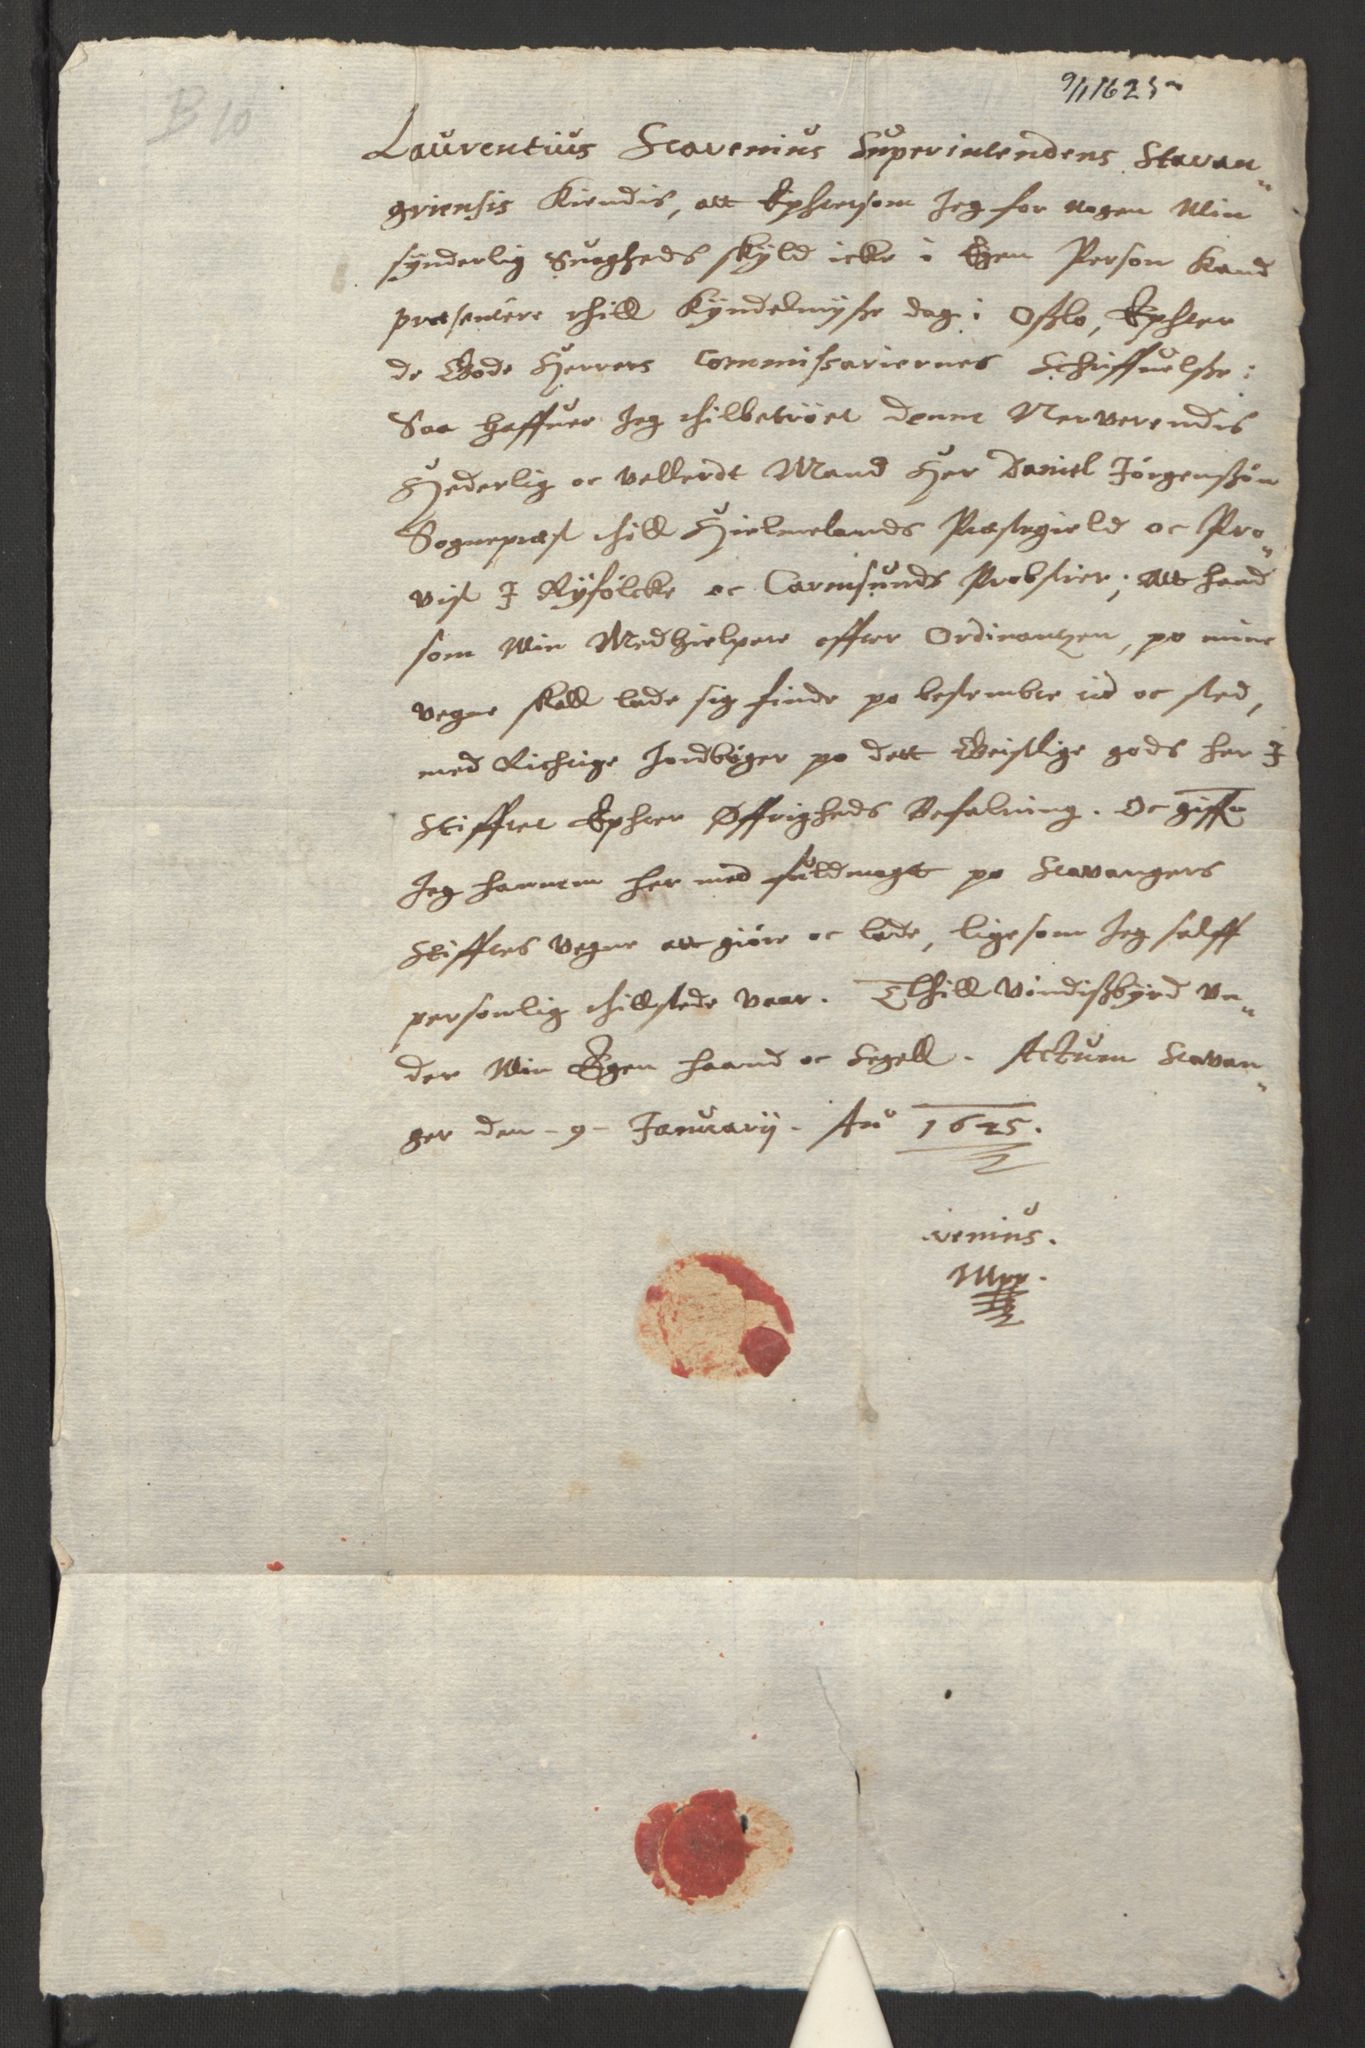 9/1 1625
B 10
Laurentius Scavenius Superintendens Stavan„
griensis Kiendis, att Ephtersom Jeg for nogen Min
synderlig Suagheds skyld icke i Egen Person kand
præsentere thill Kyndelmysse dag i Ossloe, Ephter
de Gode Herrers Commissariernes Schriffuelsse:
Saa haffuer Jeg thilbetröet denne Nerverendis
Hederlig oc vellerdt Mand Her Daniel Jörgenssön
Sognepræst thill Hielmelands Præstegield oc Pro„
vist J Ryfölcke oc Carmsunds Probstier; Att hand
som Min Medhielpere effter Ordinantzen, po mine
vegne skall lade sig finde po bestembte tid oc sted,
med Richtige Jordböger po dett Geistlige gods her J
Stifftet Ephter Øffrigheds Befalning. Oc giffr
Jeg hannem her med fuldmagt po Stavangers
Stifftes vegne att giöre oc lade, ligesom Jeg selff
personlig thillstede vaar. Thill vindissbyrd vn„
der Min Egen haand oc Segell. Actum Stavan„
ger den - 9 - Januarij. Ao 1625.
venius.
Mpp.